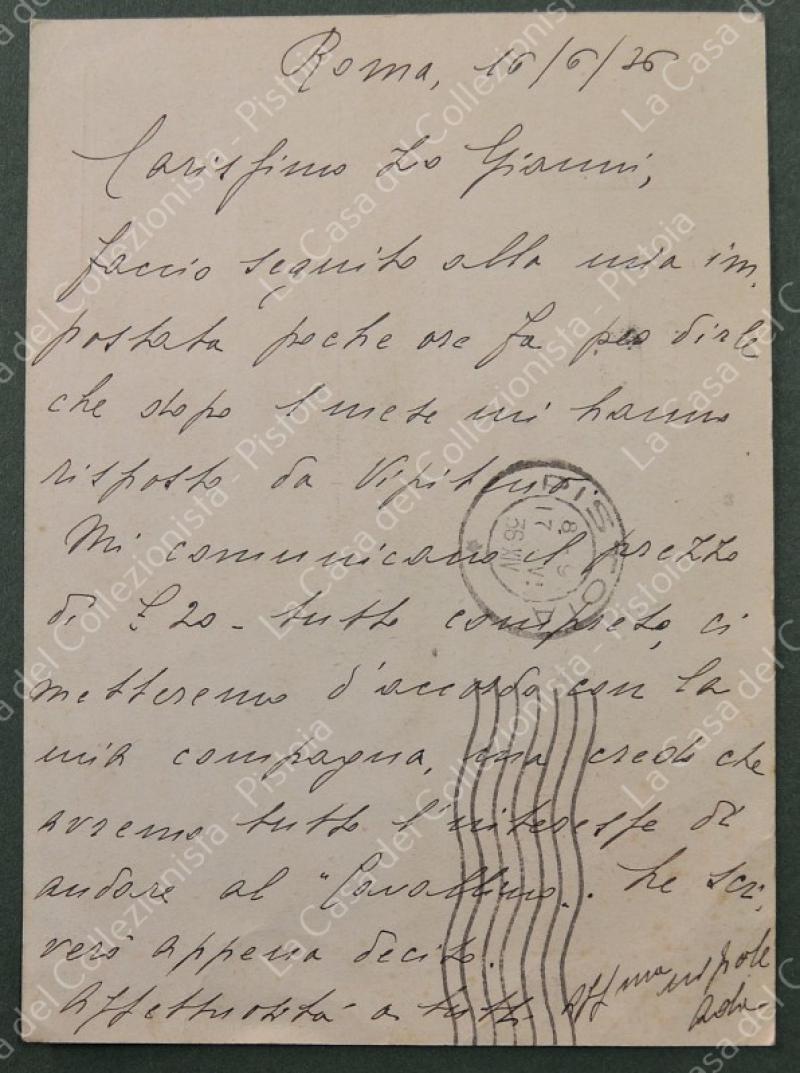 Roma, 16/6/36
Carissimo Zo Gianni,
faccio seguito alla mia im-
postata poche ore fa per dirle
che dopo 1 mese mi hanno
risposto da Vipiteno.
Mi comunicano il prezzo
di £ 20 - tutto compreso, ci
metteremo d'accordo con la
mia compagna, ma credo che
avremo tutto l'interesse di
andare al "Cavallino". Le scri-
verò appena decido.
Affettuosità a tutti Aff.ma nipote
Ada
PISTOIA
17
36 XIV
La Casa del Collezionista - Pistoia